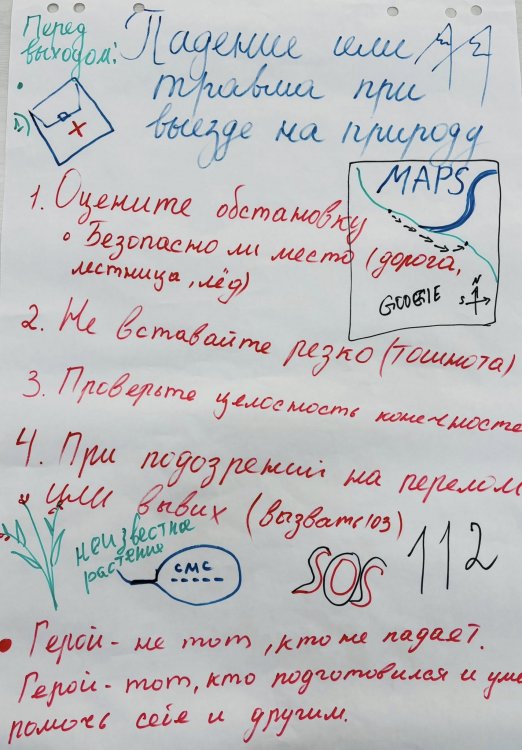 Перед
выходом:
Падение или
травма при
выезде на природу
1)
MAPS
GOOGlE
N
S
1. Оцените обстановку
Безопасно ли место (дорога,
лестница, лёд)
2. Не вставайте резко (тошнота)
3. Проверьте целосность конечносте
4. При подозрений на перелом
или вывих (вызвать 103)
неизвестное
растение
смс
SOS
112
Герой - не тот, кто не падает.
Герой - тот, кто подготовился и уме
помочь себе и другим.